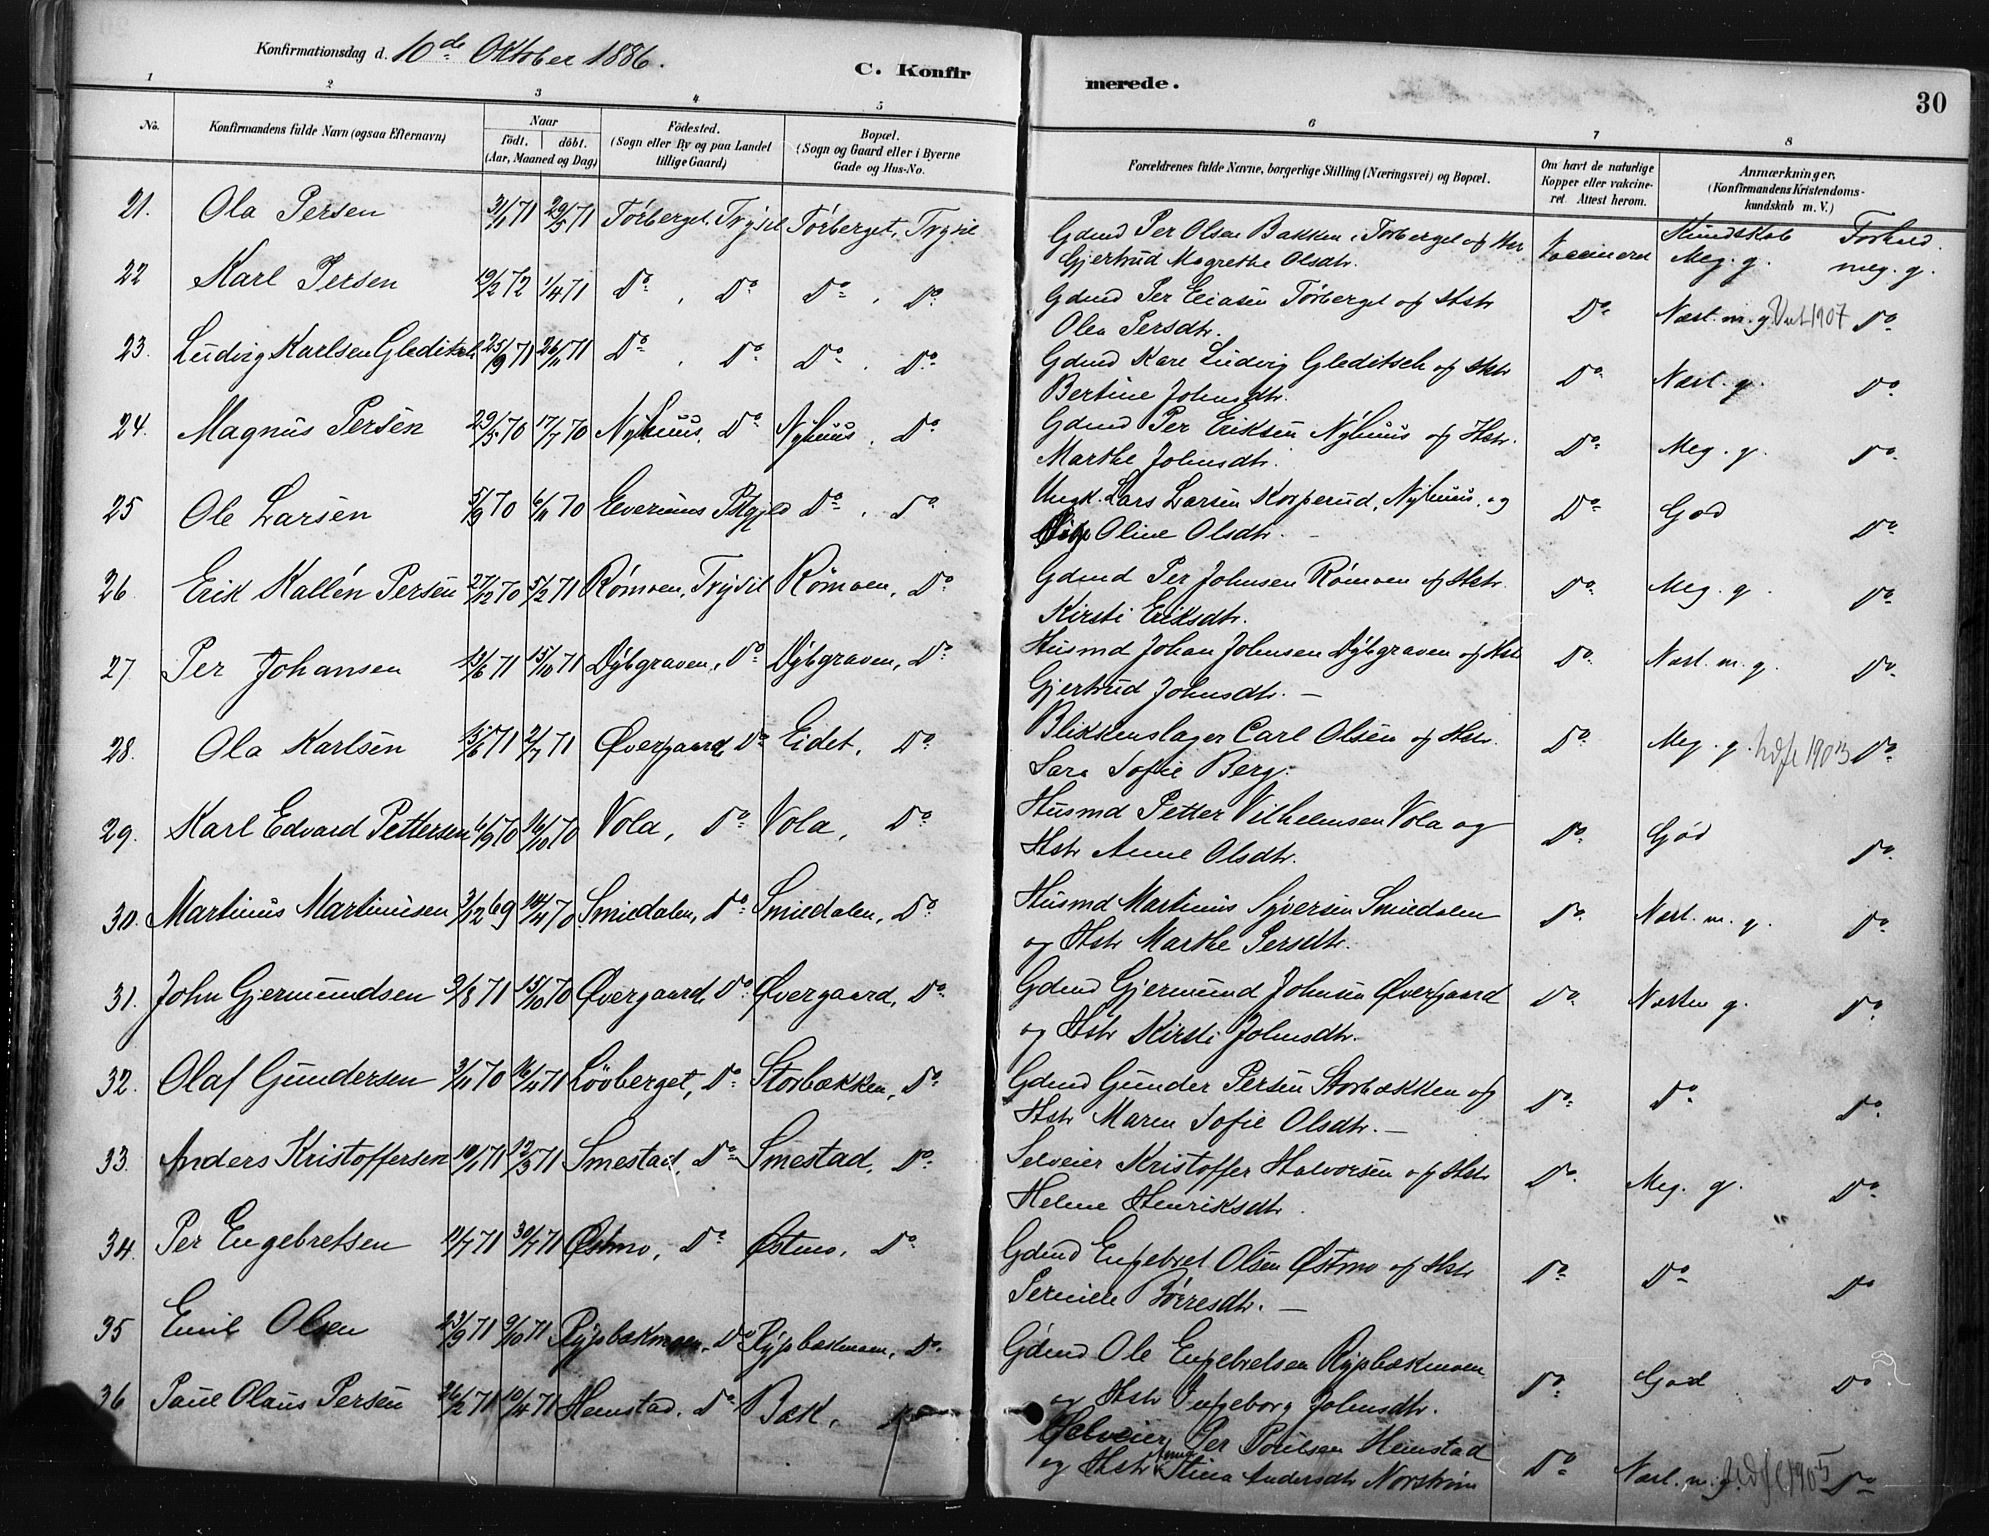 Konfirmationsdag d. 10de Oktober 1886.
C. Konfirmerede.
30
1 2 3 4 5 6 7 8
No.
Konfirmandens fulde Navn (ogsaa Efternavn)
Naar
födt. döbt.
(Aar, Maaned og Dag)
Födested.
(Sogn eller By og paa Landet
tillige Gaard)
Bopæl.
(Sogn og Gaard eller i Byerne
Gade og Hus-No.
Forældrenes fulde Navne, borgerlige Stilling (Næringsvei) og Bopæl.
Om havt de naturlige
Kopper eller vakcine-
ret. Attest herom.
Anmærkninger.
(Konfirmandens Kristendoms-
kundskab m. V.)
Kundskab Forhold.
21. Ola Persen 31/1 71 29/5 71 Törberget, Trysil Törberget, Trysil Gdmd Per Olsen Bakken i Törberget og Hstr Vaccinered Meg. g. meg. g.
Gjertrud Magrethe Olsdtr.
22 Karl Persen 19/2 72 1/4 71 Do. Do Do. Do Gdmd Per Eliasen Törberget og Hstr Do Næst. m. g. Udt 1907 Do
Olea Persdtr.
23. Ludvig Karlsen Gleditsch 25/9 71 26/11 71 Do. Do Do. Do Gdmd Karl Ludvig Gleditsch og Hstr Do Næst. g. Do
Bertine Johnsdtr.
24. Magnus Persen 29/5 70 17/7 70 Nyhuus, Do Nyhuus, Do Gdmd Per Eriksen Nyhuus og Hstr. Do Meg. g. Do
Marthe Johnsdtr.
25 Ole Larsen 5/9 70 6/11 70 Elverums Pstgjeld Do. Do Ungk. Lars Larsen Korperud, Nyhuus, og Do God Do
Pige Oline Olsdtr.
26. Erik Kallén Persen 27/12 70 5/2 71 Römoen, Trysil Römoen, Do Gdmd Per Johnsen Römoen og Hstr. Do Meg. g. Do
Kirsti Eriksdtr.
27. Per Johansen 13/6 71 15/10 71 Dybgraven, Do Dybgraven, Do Husmd Johan Johnsen Dybgraven og Hst Do Næst. m. g. Do
Gjertrud Johnsdtr.
28. Ola Karlsen 15/6 71 2/7 71 Øvergaard Do Eidet, Do Blikkenslager Carl Olsen og Hstr. Do Meg. g. Udfl 1903 Do
Sara Sofie Berg.
29. Karl Edvard Pettersen 6/9 70 16/10 70 Vola, Do Vola, Do Husmd Petter Vilhelmsen Vola og Do God Do
Hstr Anne Olsdtr.
30. Martinus Martinusen 3/12 69 18/4 70 Smiedalen, Do Smiedalen, Do Husmd Martinus Syversen Smiedalen Do Næst. m. g. Do
og Hstr Marthe Persdtr.
31. John Gjermundsen 9/8 71 15/10 70 Øvergaard, Do Øvergaard, Do Gdmd Gjermund Johnsen Øvergaard Do Næsten g. Do
og Hstr Kirsti Johnsdtr.
32. Olaf Gundersen 3/11 70 16/4 71 Lövberget, Do Storbækken, Do Gdmd Gunder Persen Storbækken og Do Do Do
Hstr Maren Sofie Olsdtr.
33. Anders Kristoffersen 10/1 71 12/3 71 Smestad, Do Smestad, Do Selveier Kristoffer Halvorsen og Hstr Do Meg. g. Do
Helene Henriksdtr.
34. Per Engebretsen 2/7 71 30/7 71 Østmo, Do Østmo, Do Gdmd Engebret Olsen Østmo og Hstr Do Do Do
Pernille Börresdtr.
35 Emil Olsen 23/9 71 9/10 71 Rypbækmoen, Do Rypbækmoen, Do Gdmd Ole Engebretsen Rypbækmoen Do God Do
og Hstr Ingeborg Johnsdtr.
36 Paul Olaus Persen 26/2 71 10/4 71 Hemstad, Do Bæk, Do Selveier Per Poulsen Hemstad Do Næst. m. g. Udfl 1905 Do
og Hstr Anna Stina Andersdtr Norström